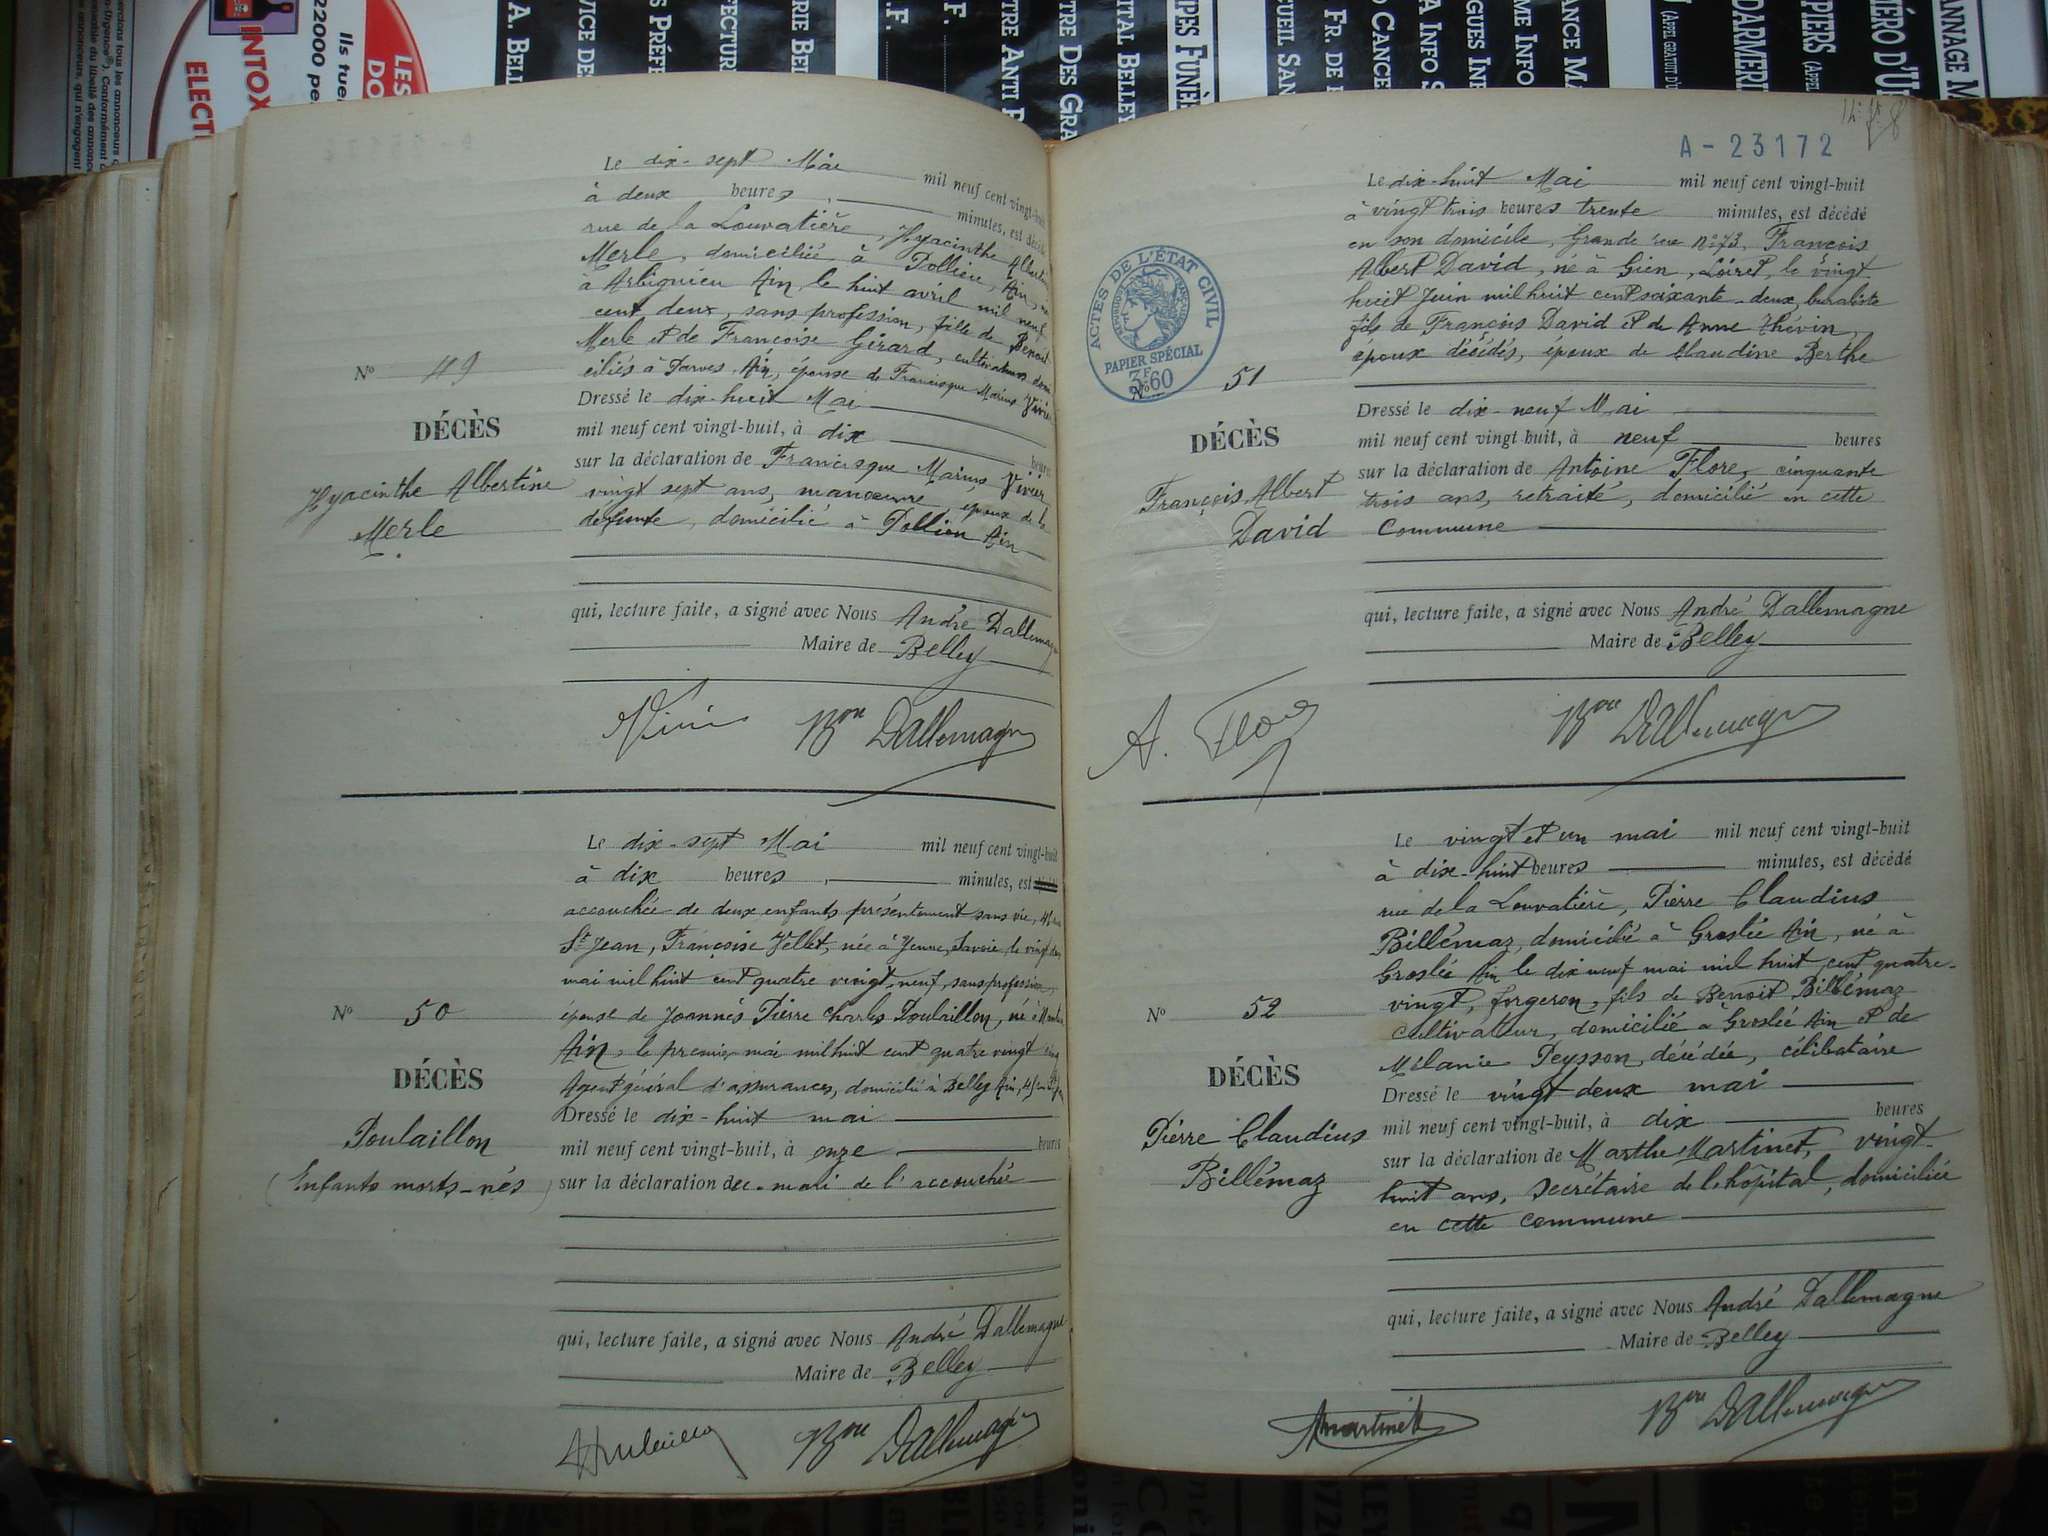 A-23172
Le dix-sept Mai mil neuf cent vingt-huit
à deux heures, minutes, est décédée
rue de la Louvatière, Hyacinthe Albertine
Merle, domiciliée à Pollieu, Ain,
à Arbignieu Ain, le huit avril mil neuf
cent deux, sans profession, fille de Benoit
Merle et de Françoise Girard, cultivateurs
ciliés à Parves, Ain, épouse de Francisque Marius Vivier
Dressé le dix-huit Mai
mil neuf cent vingt-huit, à dix heures
sur la déclaration de Francisque Marius Vivier
vingt sept ans, manoeuvre, époux de la
défunte, domicilié à Pollieu Ain
qui, lecture faite, a signé avec Nous André Dallemagne
Maire de Belley
Nº 49
DÉCÈS
Hyacinthe Albertine
Merle
Bon Dallemagne
Le dix-sept Mai mil neuf cent vingt-huit
à dix heures, minutes, est
accouchée de deux enfants présentement sans vie,
St Jean, Françoise Vellet, née à Yenne, Savoie, le vingt
mai mil huit cent quatre vingt-neuf, sans profession,
épouse de Joannès Pierre Charles Poulaillon, né à
Ain, le premier mai mil huit cent quatre vingt cinq
Agent général d'assurances, domicilié à Belley Ain,
Dressé le dix-huit mai
mil neuf cent vingt-huit, à onze heures
sur la déclaration de mari de l'accouchée
qui, lecture faite, a signé avec Nous André Dallemagne
Maire de Belley
Nº 50
DÉCÈS
Poulaillon
(Enfants morts-nés)
Bon Dallemagne
ACTES DE L'ÉTAT CIVIL
PAPIER SPÉCIAL
3F60
Le dix-huit Mai mil neuf cent vingt-huit
à vingt trois heures trente minutes, est décédé
en son domicile, Grande rue Nº 73, François
Albert David, né à Gien, Loiret, le vingt-
huit Juin mil huit cent soixante-deux, buraliste
fils de François David et de Anne Thévin,
époux décédés, époux de Claudine Berthe
Dressé le dix-neuf Mai
mil neuf cent vingt huit, à neuf heures
sur la déclaration de Antoine Flore, cinquante
trois ans, retraité, domicilié en cette
Commune
qui, lecture faite, a signé avec Nous André Dallemagne
Maire de Belley
Nº 51
DÉCÈS
François Albert
David
A. Flore
Bon Dallemagne
Le vingt et un mai mil neuf cent vingt-huit
à dix-huit heures minutes, est décédé
rue de la Louvatière, Pierre Claudius
Billémaz, domicilié à Groslée Ain, né à
Groslée Ain le dix neuf mai mil huit cent quatre-
vingt, forgeron, fils de Benoit Billémaz
cultivateur, domicilié à Groslée Ain et de
Mélanie Peysson, décédée, célibataire
Dressé le vingt deux mai
mil neuf cent vingt-huit, à dix heures
sur la déclaration de Marthe Martinet, vingt-
huit ans, secrétaire de l'hôpital, domiciliée
en cette commune
qui, lecture faite, a signé avec Nous André Dallemagne
Maire de Belley
Nº 52
DÉCÈS
Pierre Claudius
Billémaz
Martinet
Bon Dallemagne